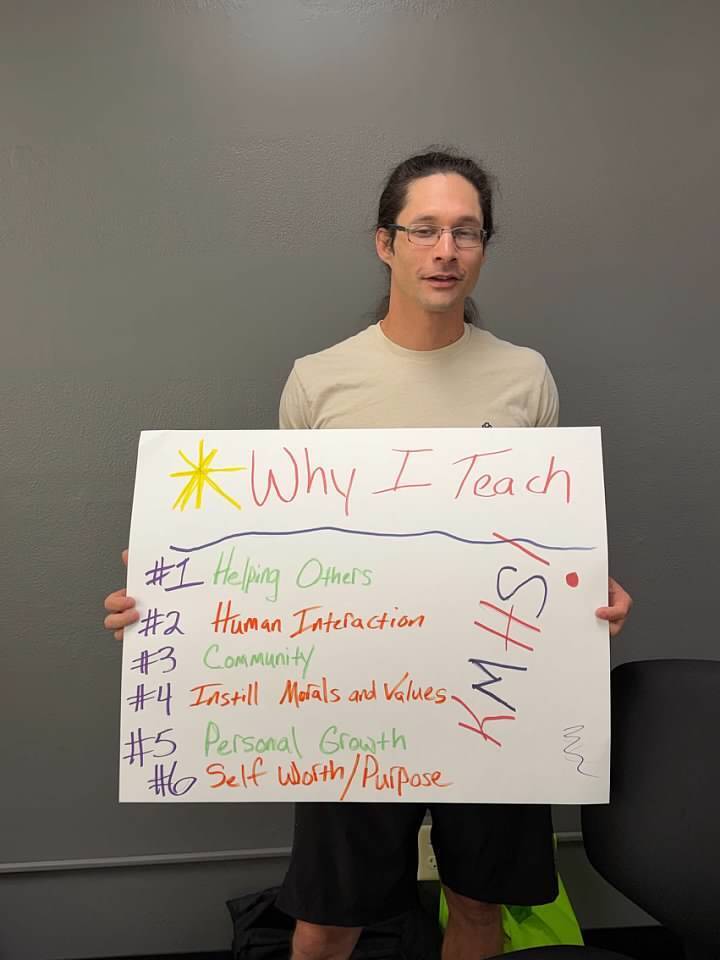 Why I Teach
#1 Helping Others
#2 Human Interaction
#3 Community
#4 Instill Morals and Values
#5 Personal Growth
#6 Self Worth/Purpose
KMHS!